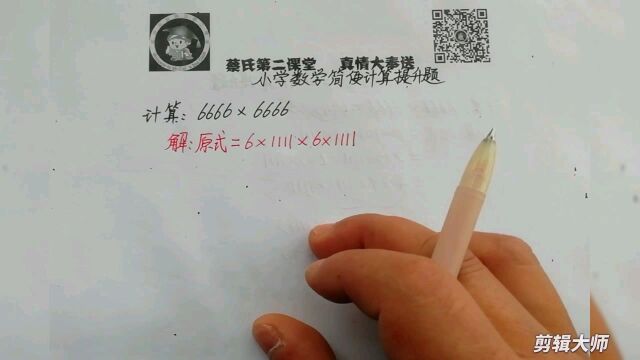 蔡氏第二课堂 真情大奉送
小学数学简便计算提升题
计算: 6666×6666
解:原式=6×1111×6×1111
剪辑大师